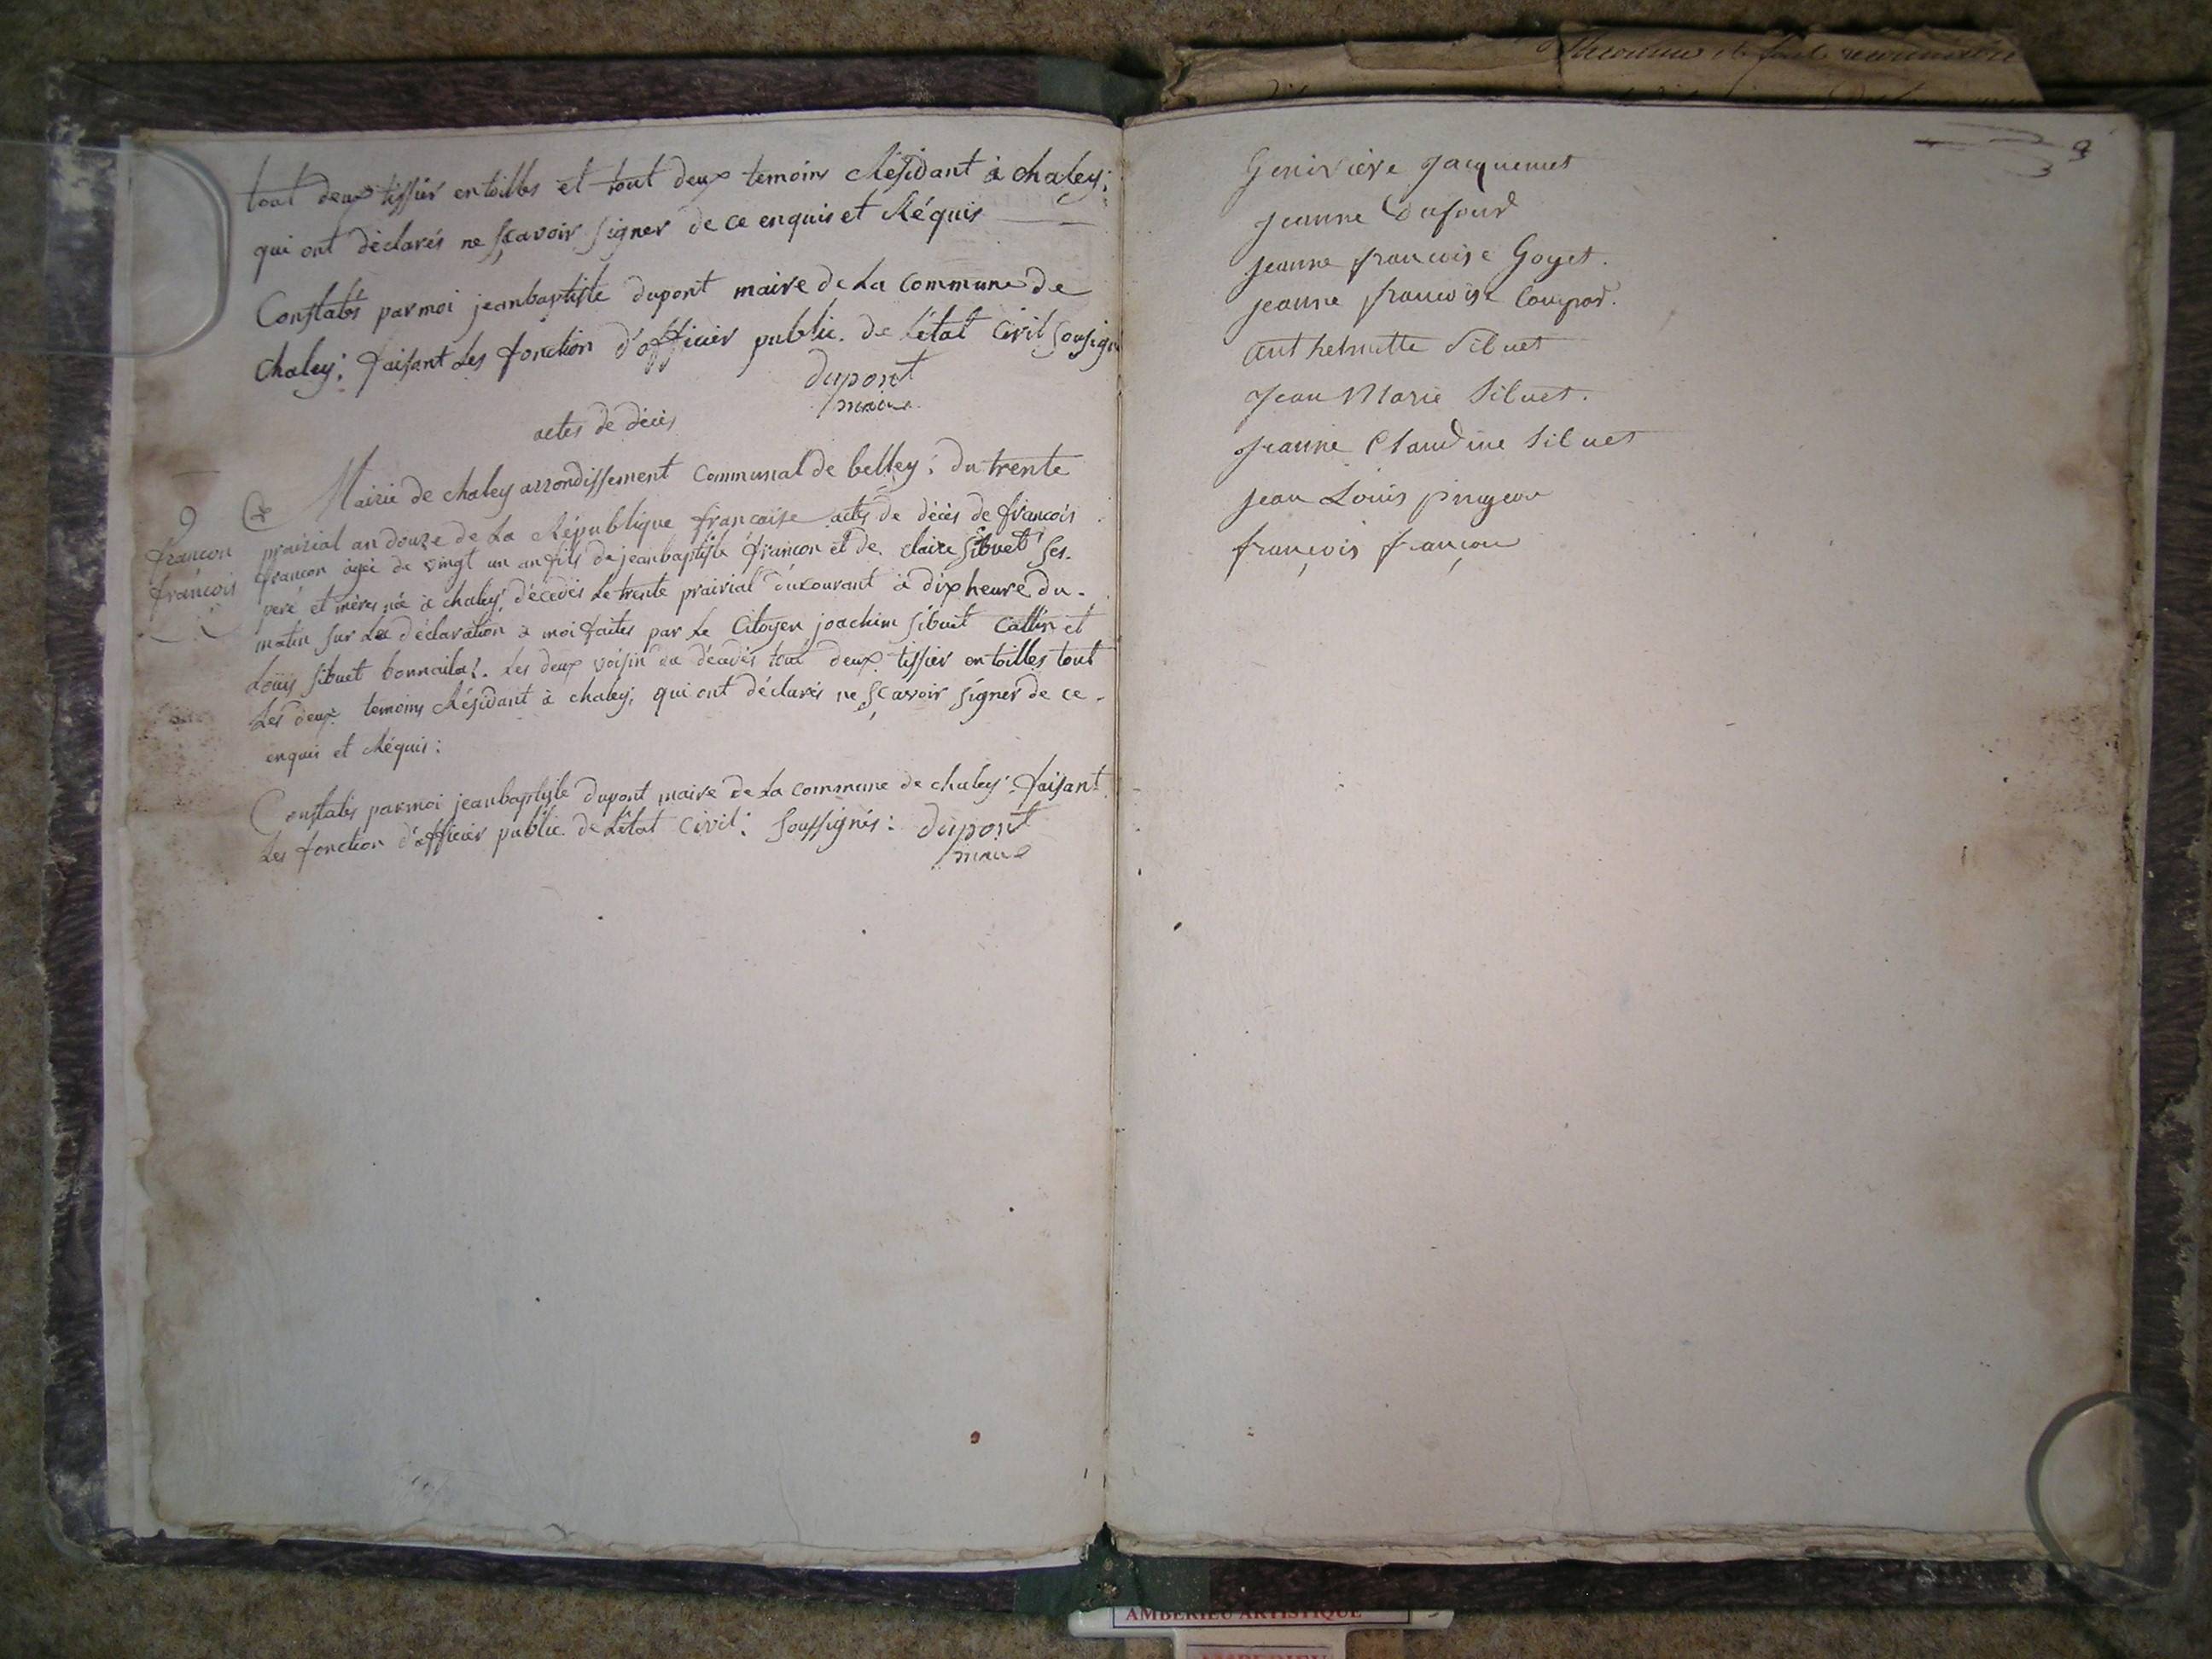 tout deux tissier en toilles et tout deux temoins Résidant à chaley;
qui ont déclarés ne sçavoir signer de ce enquis et Réquis
Constatés par moi jeanbaptiste dupont maire de La Commune de
Chaley; faisant Les fonction d'officier public. de L'état Civil sousigné
dupont
maire
actes de décès
Mairie de chaley arrondissement Communal de belley; du trente
9
francon
françois
prairial an douze de La République francaise actes de décès de francois
francon agée de vingt un an fils de jeanbaptiste francon et de claire sibuet ses
peré et mères née à chaley; décédés Le trente prairial du courant à dix heure du
matin sur La déclaration à moi faites par Le Citoyen joachim sibuet Callin et
Loüis sibuet Les deux voisin du décédés tout deux tissier en toilles tout
Les deux temoins Résidant à chaley; qui ont déclarés ne sçavoir signer de ce
enquis et Réquis:
Constatés par moi jeanbaptiste dupont maire de La commune de chaley: faisant
Les fonction d'officier public de L'état Civil: soussignés: dupont
maire
Genivieve Jacquemet
Jeanne Dufour
Jeanne francoise Goyet.
Jeanne francoise
Anthelmette Sibuet
Jean Marie Sibuet.
Jeanne Claudine Sibuet
Jean Louis pingeon
françois françon
AMBERIEU ARTISTIQUE
AMBERIEU